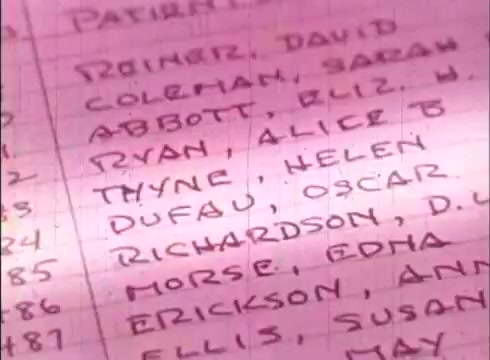 PATIENT
REINER, DAVID
COLEMAN, SARAH
ABBOTT, ELIZ. H.
2 RYAN, ALICE B
THYNE, HELEN
84 DUFAU, OSCAR
85 RICHARDSON, D.
+86 MORSE, EDNA
+87 ERICKSON, ANN
ELLIS, SUSAN
MAY